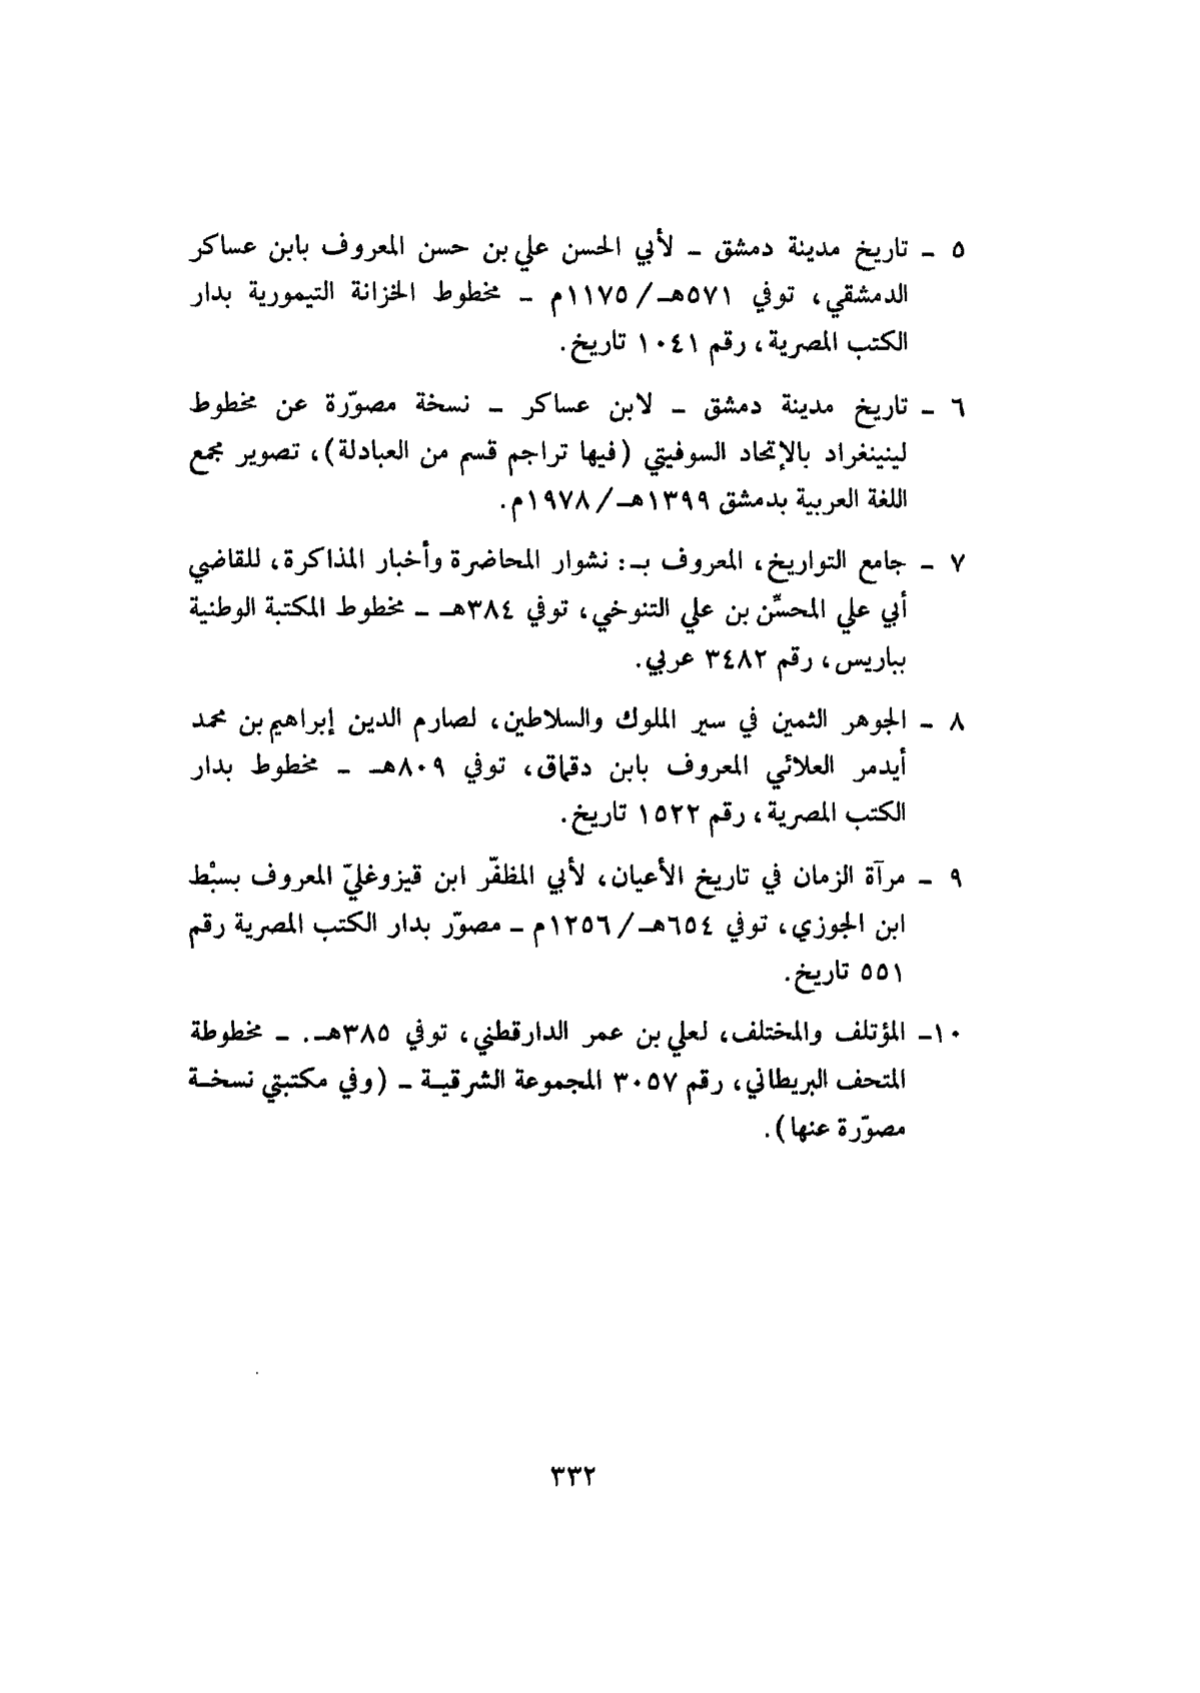 ٥ - تاريخ مدينة دمشق - لأبي الحسن علي بن حسن المعروف بابن عساكر
الدمشقي، توفي ٥٧١هـ/١١٧٥م - مخطوط الخزانة التيمورية بدار
الكتب المصرية، رقم ١٠٤١ تاريخ.
٦ - تاريخ مدينة دمشق - لابن عساكر - نسخة مصوّرة عن مخطوط
لينينغراد بالإتحاد السوفيتي (فيها تراجم قسم من العبادلة)، تصوير مجمع
اللغة العربية بدمشق ١٣٩٩هـ/١٩٧٨م.
٧ - جامع التواريخ، المعروف بـ: نشوار المحاضرة وأخبار المذاكرة، للقاضي
أبي علي المحسِّن بن علي التنوخي، توفي ٣٨٤هـ - مخطوط المكتبة الوطنية
بباريس، رقم ٣٤٨٢ عربي.
٨ - الجوهر الثمين في سير الملوك والسلاطين، لصارم الدين إبراهيم بن محمد
أيدمر العلائي المعروف بابن دقماق، توفي ٨٠٩هـ - مخطوط بدار
الكتب المصرية، رقم ١٥٢٢ تاريخ.
٩ - مرآة الزمان في تاريخ الأعيان، لأبي المظفّر ابن قيزوغليّ المعروف بسبْط
ابن الجوزي، توفي ٦٥٤هـ/١٢٥٦م - مصوّر بدار الكتب المصرية رقم
٥٥١ تاريخ.
١٠- المؤتلف والمختلف، لعلي بن عمر الدارقطني، توفي ٣٨٥هـ. - مخطوطة
المتحف البريطاني، رقم ٣٠٥٧ المجموعة الشرقيـة - (وفي مكتبتي نسخـة
مصوّرة عنها).
٣٣٢